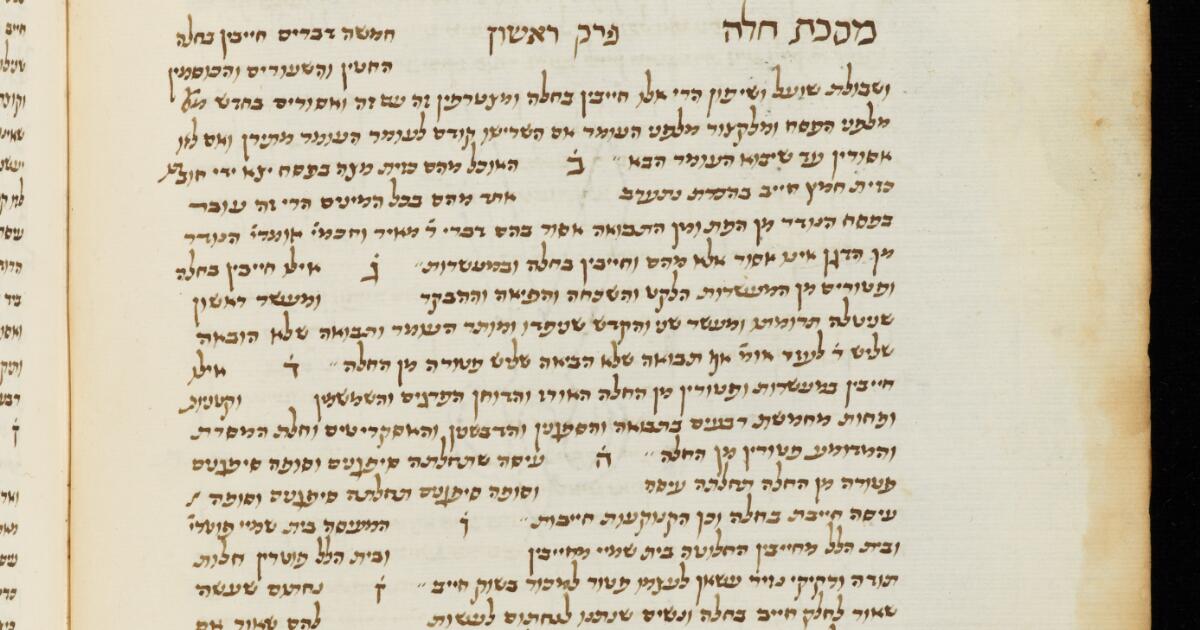 מסכת חלה פרק ראשון חמשה דברים חייבין בחלה
החטין והשעורים והכוסמין
ושבולת שועל ושיפון הרי אלו חייבין בחלה ומצטרפין זה עם זה ואסורים בחדש
מלפני הפסח ומלקצור מלפני העומר אם השרישו קודם לעומר העומר מתירן ואם לאו
אסורין עד שיבוא העומר הבא ב האוכל מהם כזית מצה בפסח יצא ידי חובתו
כזית חמץ חייב בהכרת נתערב אחד מהם בכל המינים הרי זה עובר
בפסח הנודר מן הפת ומן התבואה אסור בהם דברי ר מאיר וחכמי אומרי הנודר
מן הדגן אינו אסור אלא מהם וחייבין בחלה ובמעשרות ג אילו חייבין בחלה
ופטורים מן המעשרות הלקט והשכחה והפיאה וההבקר ומעשר ראשון
שניטלה תרומתו ומעשר שני והקדש שניפדו ומותר העומר ותבואה שלא הובאה
שליש ר לעזר אומ אף תבואה שלא הביאה שליש פטורה מן החלה ד אילו
חייבין במעשרות ופטורין מן החלה האורז והדוחן הפרגים והשמשמין וקטניות
ופחות מחמשת רבעים בתבואה והסופגנין והדבשנין והאסקריטים וחלת המסרת
והמדומע פטורין מן החלה ה עיסה שתחלתה סופגנים וסופה סופגנים
פטורה מן החלה תחלתה עיסה וסופה סופגנים תחלתה סופגנים וסופה
עיסה חייבת בחלה וכן הקנוקעות חייבות ו המעיסה בית שמיי פוטרי
ובית הלל מחייבין החלוטה בית שמיי מחייבין ובית הלל פוטרין חלות
תודה ורקיקי נזיר עשאן לעצמו פטור למכור בשוק חייב ז נחתום שעשה
שאור לחלק חייב בחלה ונשים שנתנו לנחתום לעשות להם שאור אם